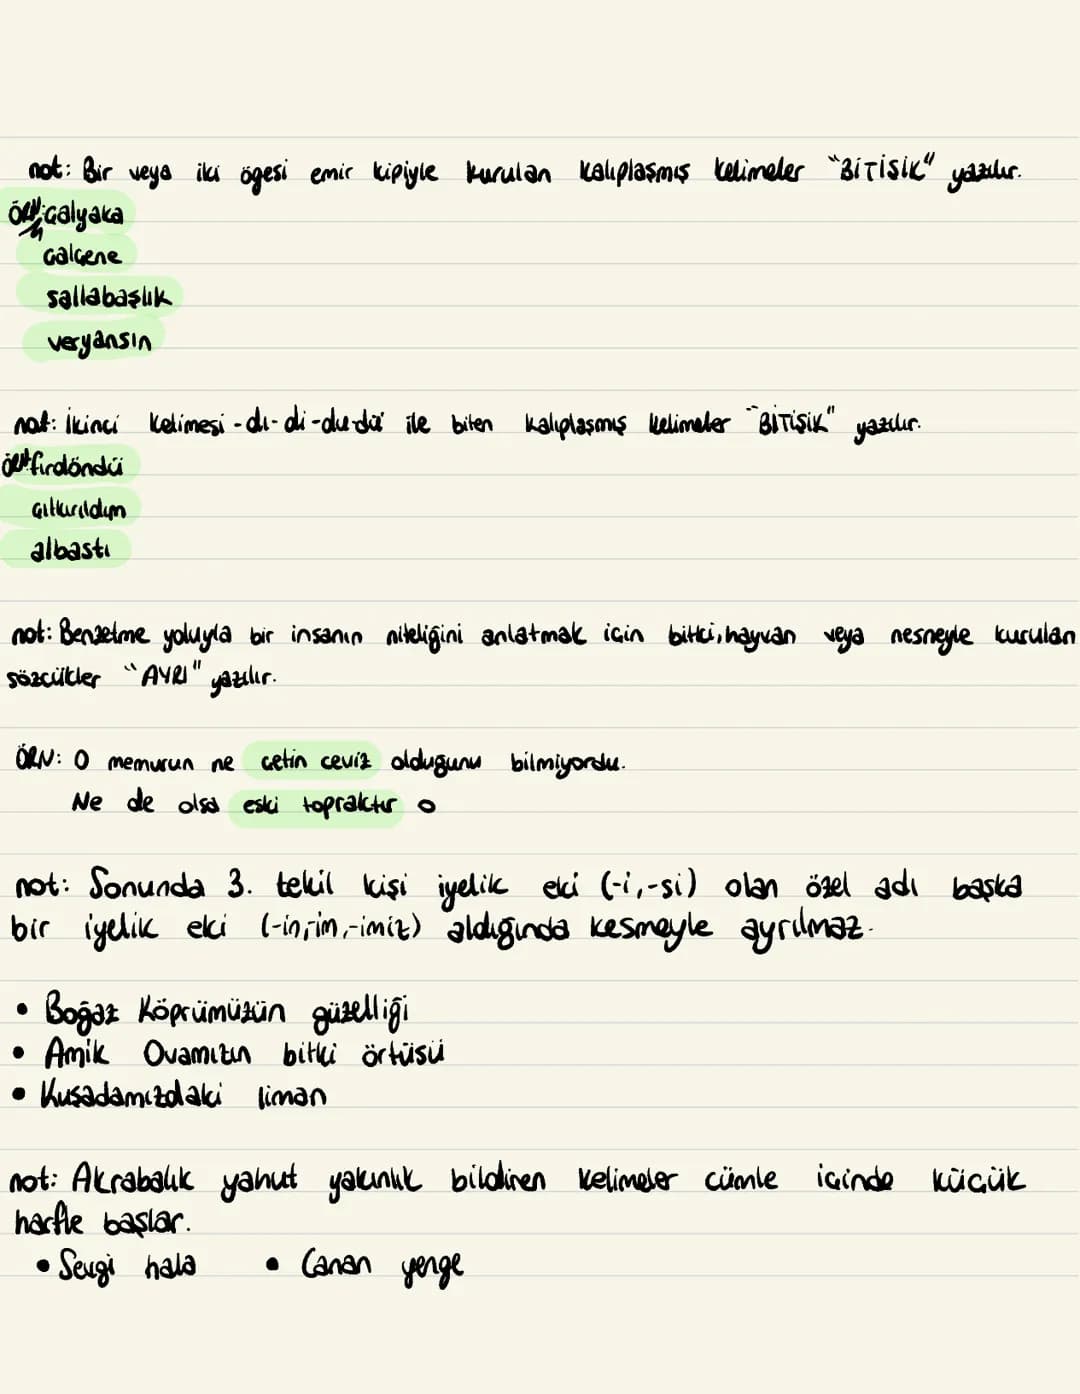 not: Bir veya iki ögesi emir kipiyle kurulan kalıplaşmış kelimeler "BİTİŞİK" yazılır.
ÖRN: çalyaka
çalçene
sallabaşlık
veryansın
not: İkinci kelimesi -dı-di-du-dü ile biten kalıplaşmış kelimeler "BİTİŞİK" yazılır.
ÖRN: fırdöndü
çıtkırıldım
albastı
not: Benzetme yoluyla bir insanın niteliğini anlatmak için bitki, hayvan veya nesneyle kurulan
sözcükler "AYRI" yazılır.
ÖRN: O memurun ne çetin ceviz olduğunu bilmiyordu.
Ne de olsa eski topraktır o
not: Sonunda 3. tekil kişi iyelik eki (-i,-si) olan özel adı başka
bir iyelik eki (-in,-im,-imiz) aldığında kesmeyle ayrılmaz.
• Boğaz Köprümüzün güzelliği
• Amik Ovamızın bitki örtüsü
• Kuşadamızdaki liman
not: Akrabalık yahut yakınlık bildiren kelimeler cümle içinde küçük
harfle başlar.
• Sevgi hala • Canan yenge